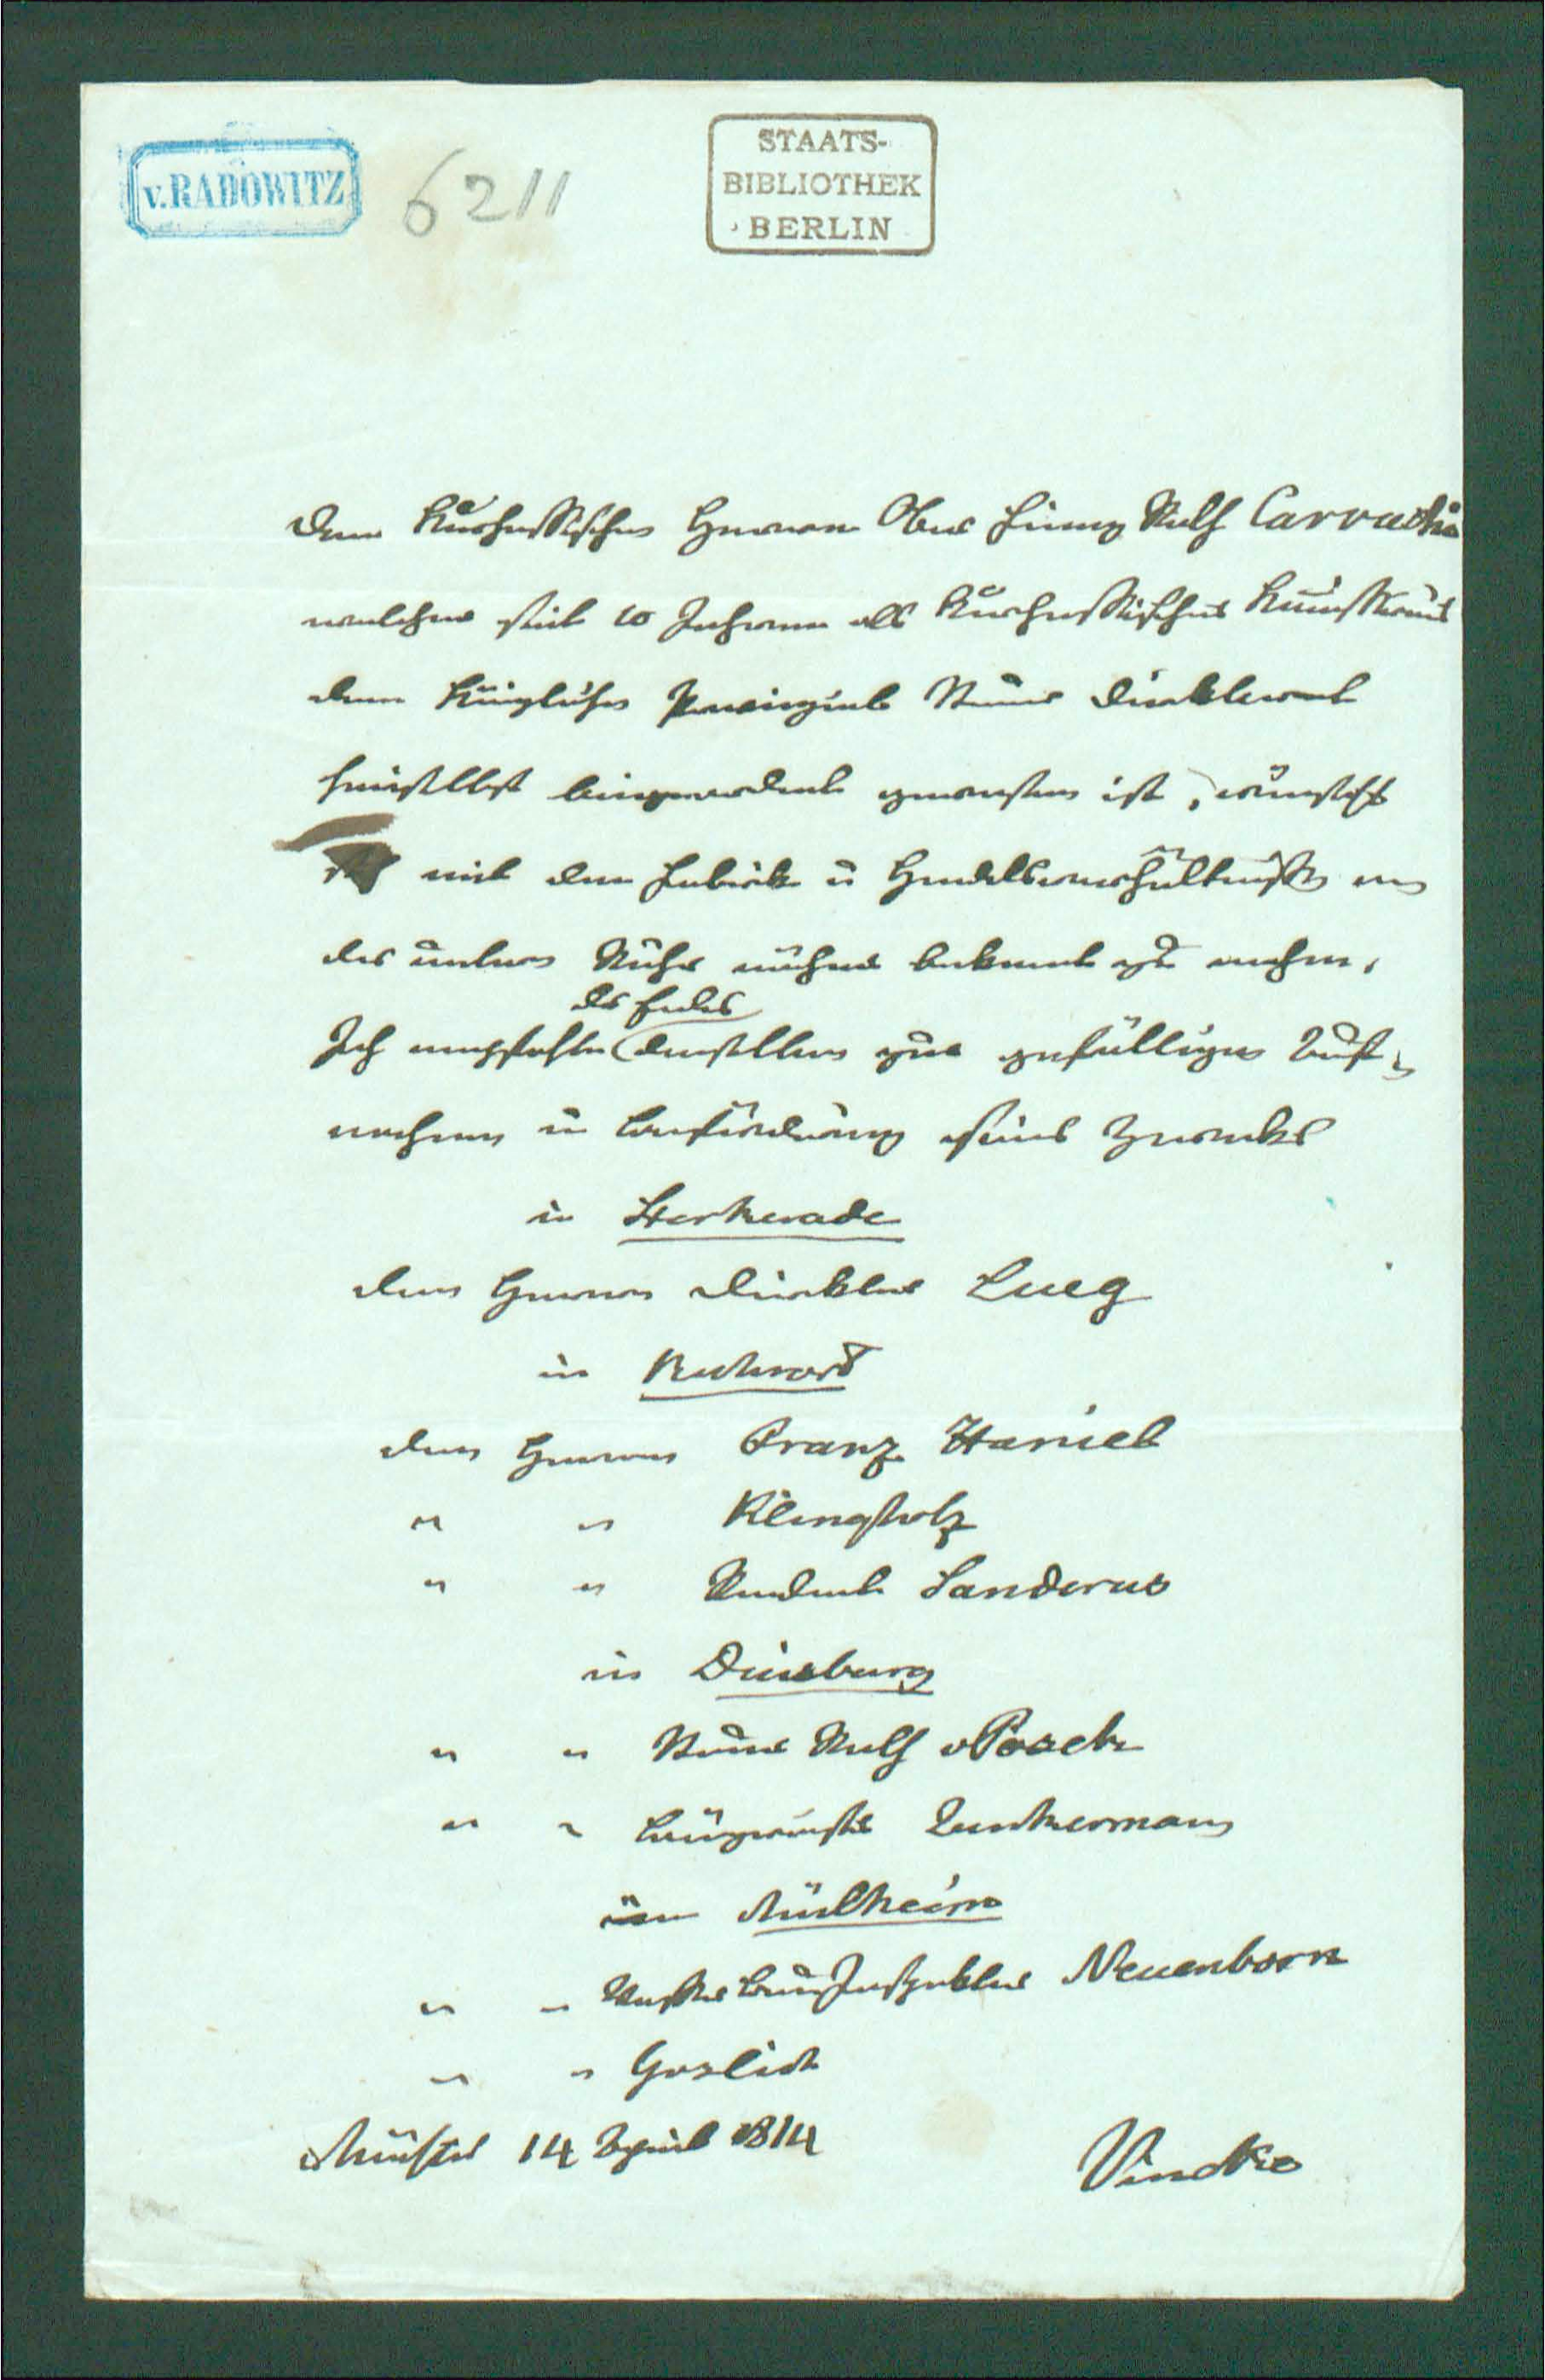 v. RADOWITZ
6211
STAATS-
BIBLIOTHEK
BERLIN
Dem Kurhessischen Herrn Ober Finanz Rath Carvachi
welcher seit 10 Jahren als Kurhessischer
dem Königlichen Provinzial Steuer Direktorat
hieselbst beigeordnet gewesen ist, wünscht
mit den Fabrik u Handelsverhältnissen an
der untern Ruhr näher bekannt zu machen,
des Endes
Ich empfehle denselben zur gefälligen Auf-
nahme u Beförderung seines Zwecks
in Sterkerade
dem Herrn Direktor Lueg
in Ruhrort
dem Herrn Franz Haniel
" " Klingholz
" " Rendant Sanderus
in Duisburg
" " Steuer Rath
" " Bürgermeister
in Mülheim
" " Wasser Bau Inspektor Neuenborn
" "
Münster 14 April 1814
Vincke